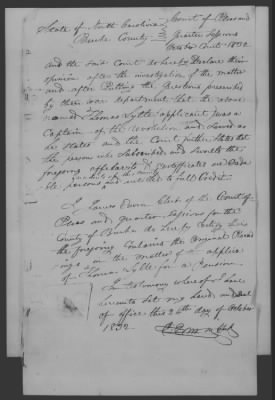 State of North Carolina } Court of Pleas and
Burke County } Quarter Sessions
October Court 1832
and the said Court do hereby Declare their
opinion after the investigation of the matter
and after Putting the questions prescribed
by the war department that the above
named Thomas Lytle applicant was a
Captain of the revolution and served as
he states and the Court further states that
the person who Subscribed and Swore to the
foregoing affidavits & Certificates are Credi
ble persons and entitled to full Credit
I James Erwin Clerk of the Court of
Pleas and quarter Sessions for the
County of Burke do hereby Certify that
the foregoing Contains the original Proceed
ings in the matter of the applica
of Thomas Lytle for a Pension
In testimony whereof I have
hereunto Set my hand and Seal
of office this 26th day of October
1832